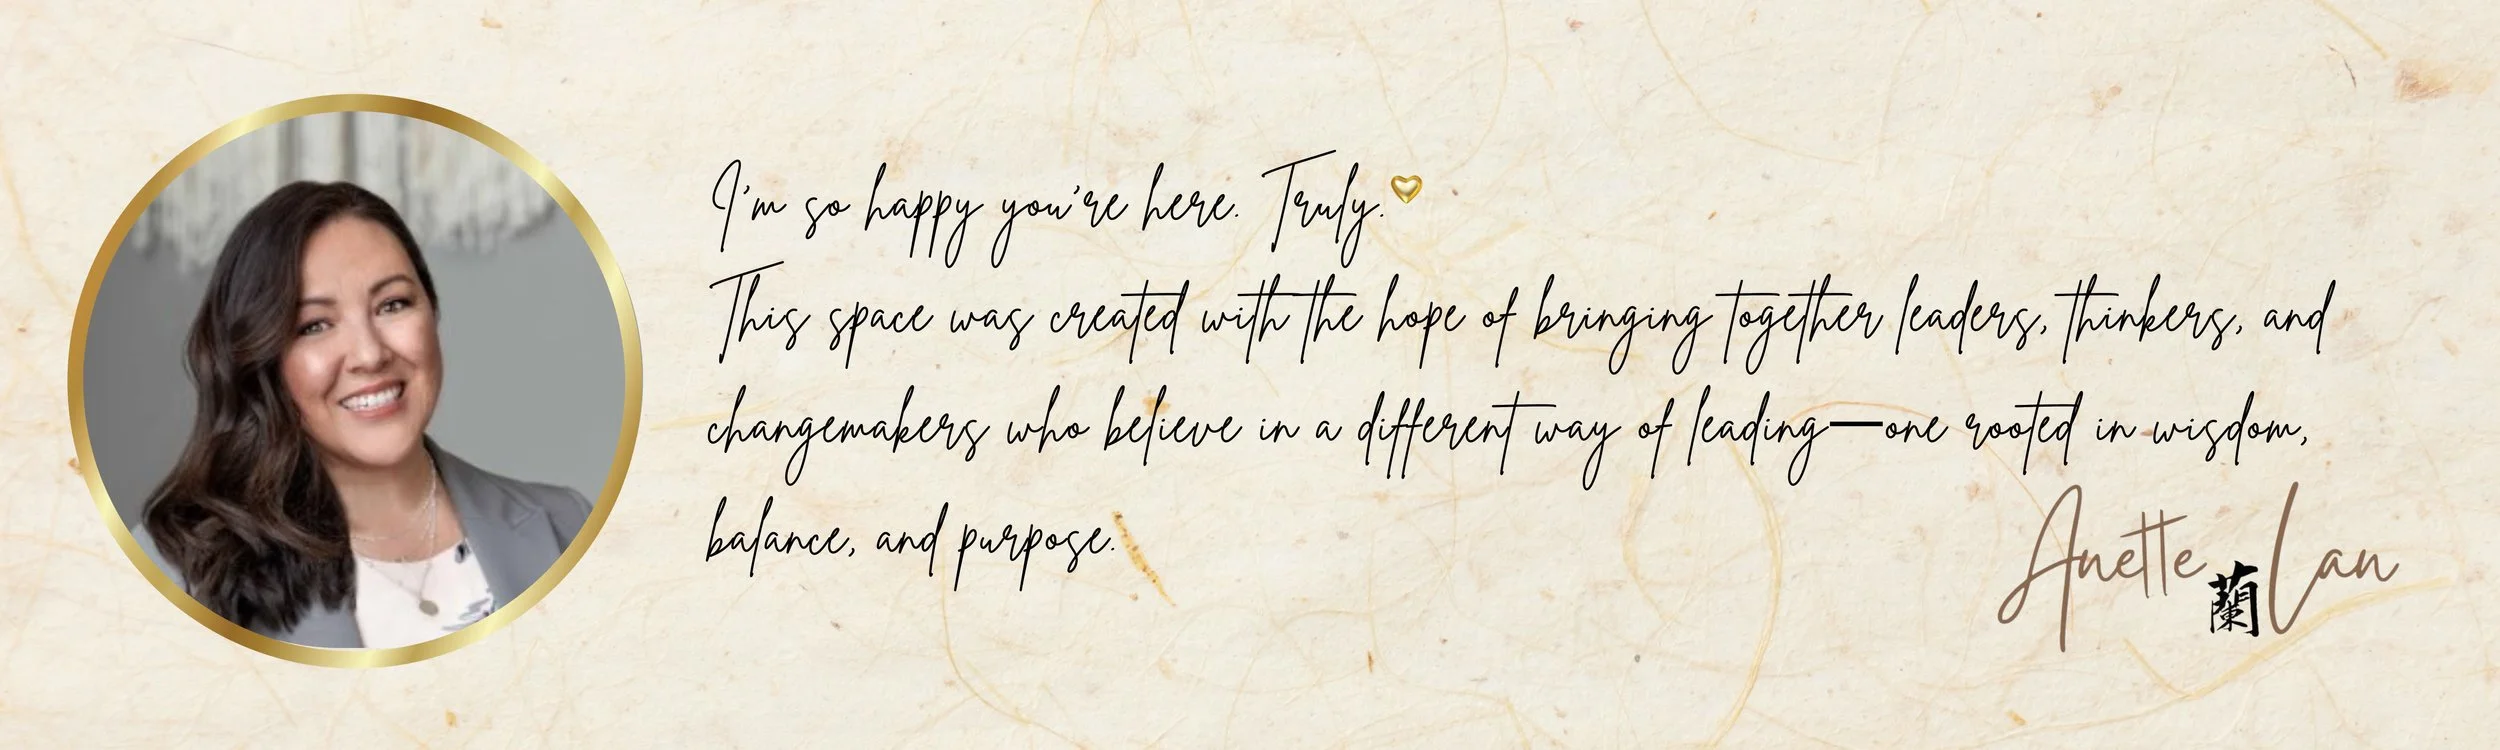 I'm so happy you're here. Truly.💛
This space was created with the hope of bringing together leaders, thinkers, and
changemakers who believe in a different way of leading—one rooted in wisdom,
balance, and purpose.
Anette 蘭 Lan